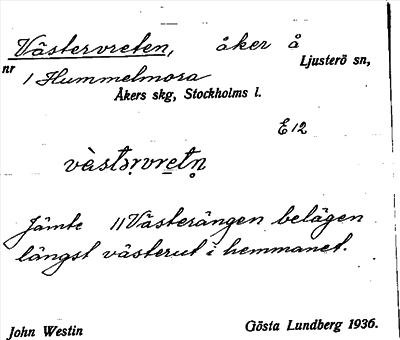 Västervreten, åker å
Ljusterö sn,
nr 1 Hummelmora
Åkers skg, Stockholms l.
E12
vàstərvre̱tn̥
Jämte 11 Västerängen belägen
längst västerut i hemmanet.
John Westin
Gösta Lundberg 1936.